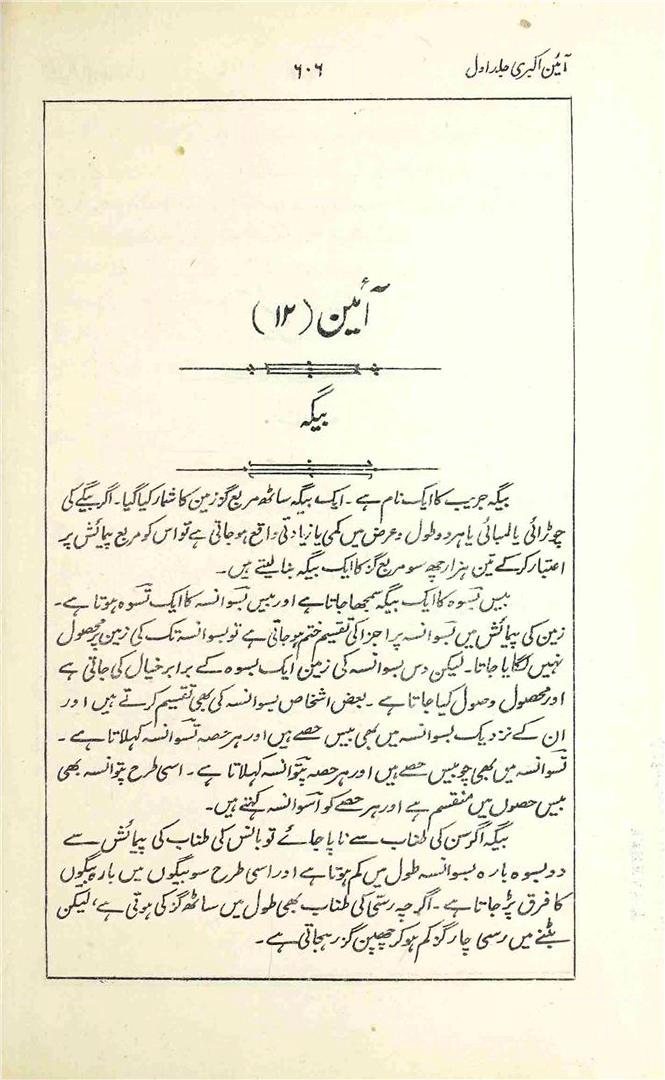 آئین اکبری جلد اول
۶۰۶
آئین (۱۲)
بیگہ
بیگہ جریب کا ایک نام ہے۔ ایک بیگہ ساٹھ مربع گز زمین کا شمار کیا گیا۔ اگر بیگے کی
چوڑائی یا لمبائی یا ہر دو طول وعرض میں کمی یا زیادتی واقع ہو جاتی ہے تو اس کو مربع پیمائش پر
اعتبار کر کے تین ہزار چھ سو مربع گز کا ایک بیگہ بنا لیتے ہیں۔
بیس بسوہ کا ایک بیگہ سمجھا جاتا ہے اور بیس بسوانسہ کا ایک بسوہ ہوتا ہے۔
زمین کی پیمائش میں بسوانسہ پر اجزا کی تقسیم ختم ہو جاتی ہے تو بسوانسہ تک کی زمین پر محصول
نہیں لگایا جاتا۔ لیکن دس بسوانسہ کی زمین ایک بسوہ کے برابر خیال کی جاتی ہے
اور محصول وصول کیا جاتا ہے۔ بعض اشخاص بسوانسہ کی بھی تقسیم کرتے ہیں اور
ان کے نزدیک بسوانسہ میں بھی بیس حصے ہیں اور ہر حصہ تسوانسہ کہلاتا ہے۔
تسوانسہ میں بھی چوبیس حصے ہیں اور ہر حصہ پتوانسہ کہلاتا ہے۔ اسی طرح پتوانسہ بھی
بیس حصوں میں منقسم ہے اور ہر حصے کو انسوانسہ کہتے ہیں۔
بیگہ اگر سن کی طناب سے ناپا جائے تو بانس کی طناب کی پیمائش سے
دو بسوہ بارہ بسوانسہ طول میں کم ہوتا ہے اور اسی طرح سو بیگوں میں بارہ بیگوں
کا فرق پڑ جاتا ہے۔ اگرچہ رسّی کی طناب بھی طول میں ساٹھ گز کی ہوتی ہے، لیکن
بٹنے میں رسی چار گز کم ہو کر چھپن گز رہجاتی ہے۔